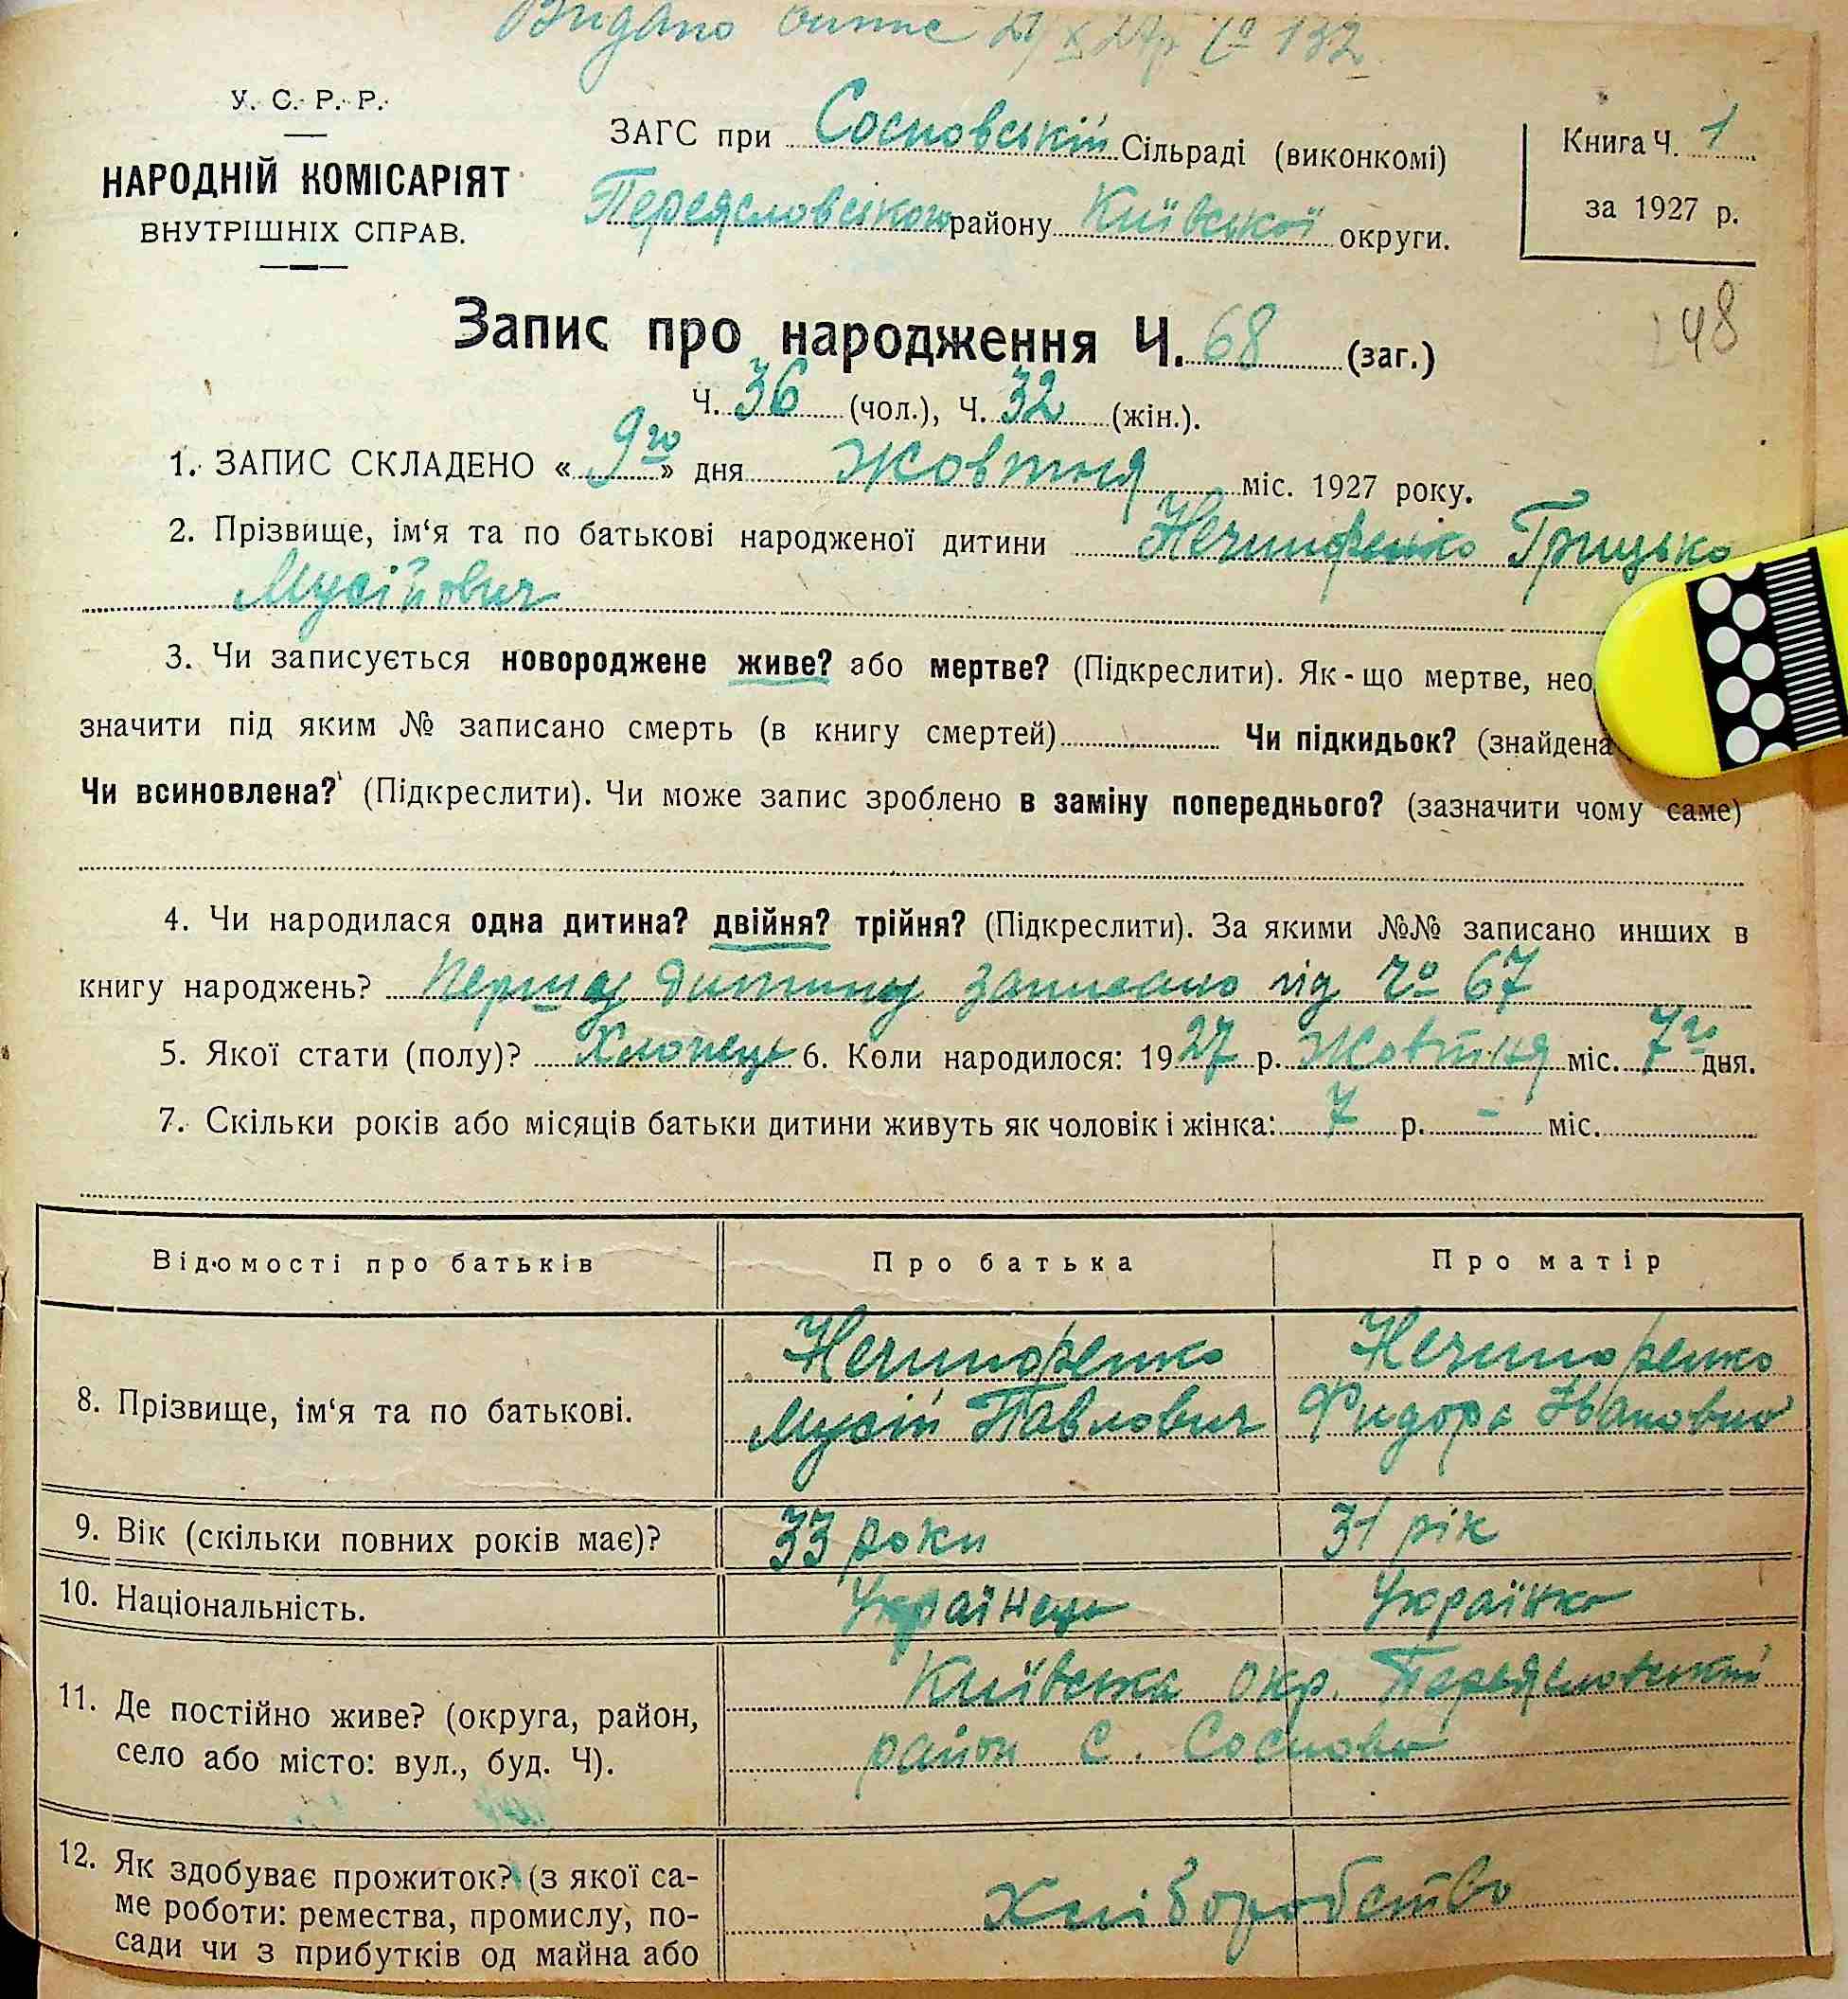 Видано витис 29 X 27р Чо 132
У. С. Р. Р.
НАРОДНІЙ КОМІСАРІЯТ
ВНУТРІШНІХ СПРАВ.
ЗАГС при Сосновській Сільраді (виконкомі)
Переясловського району Київської округи.
Книга Ч. 1
за 1927 р.
148
Запис про народження Ч. 68 (заг.)
Ч. 36 (чол.), Ч. 32 (жін.).
1. ЗАПИС СКЛАДЕНО « 9го » дня Жовтня міс. 1927 року.
2. Прізвище, ім‘я та по батькові народженої дитини Нечипоренко Грицько
Мусійович
3. Чи записується новороджене живе? або мертве? (Підкреслити). Як-що мертве, нео
значити під яким № записано смерть (в книгу смертей) Чи підкидьок? (знайдена
Чи всиновлена? (Підкреслити). Чи може запис зроблено в заміну попереднього? (зазначити чому саме)
4. Чи народилася одна дитина? двійня? трійня? (Підкреслити). За якими №№ записано инших в
книгу народжень? Першу дитину записано під Чо 67
5. Якої стати (полу)? Хлопець 6. Коли народилося: 1927 р. Жовтня міс. 7го дня.
7. Скільки років або місяців батьки дитини живуть як чоловік і жінка: 7 р. - міс.
Відомості про батьків Про батька Про матір
8. Прізвище, ім‘я та по батькові. Нечипоренко Мусій Павлович Нечипоренко Фидора Івановна
9. Вік (скільки повних років має)? 33 роки 31 рік
10. Національність. Українець Українка
11. Де постійно живе? (округа, район,
село або місто: вул., буд. Ч).
Київська окр. Переясловський
район с. Соснова
12. Як здобуває прожиток? (з якої са-
ме роботи: ремества, промислу, по-
сади чи з прибутків од майна або
Хліборобство